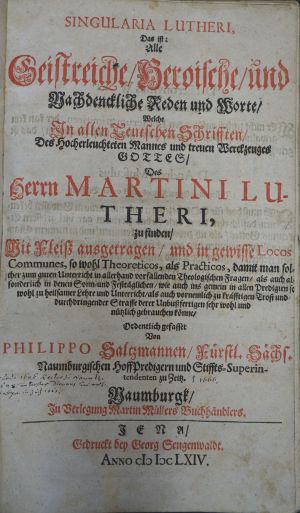 SINGULARIA LUTHERI,
Das ist:
Alle
Geistreiche/Heroische/und
Nachdenckliche Reden und Worte/
Welche
In allen Teutschen Schrifften/
Des Hocherleuchteten Mannes und treuen Werckzeuges
GOTTES/
Des
Herrn MARTINI LU-
THERI,
zu finden/
Mit Fleiß ausgetragen/ und in gewisse Locos
Communes, so wohl Theoreticos, als Practicos, damit man sol-
cher zum guten Unterricht in allerhand vorfallenden Theologischen Fragen/ als auch ab-
sonderlich in denen Sonn-und Festtäglichen/ wie auch ins gemein in allen Predigten so
wohl zu heilsamer Lehre und Unterricht/ als auch vornemlich zu kräfftigen Trost und
durchdringender Straffe derer Unbußfertigen sehr wohl und
nützlich gebrauchen könne/
Ordentlich gefasset
Von
PHILIPPO Saltzmannen/ Fürstl. Sächs.
Naumburgischen HoffPredigern und Stiffts-Superin-
tendenten zu Zeitz.
Naumburgk/
In Verlegung Martin Müllers Buchhändlers.
JENA/
Gedruckt bey Georg Sengenwaldt.
ANNO cIɔ Iɔc LXIV.